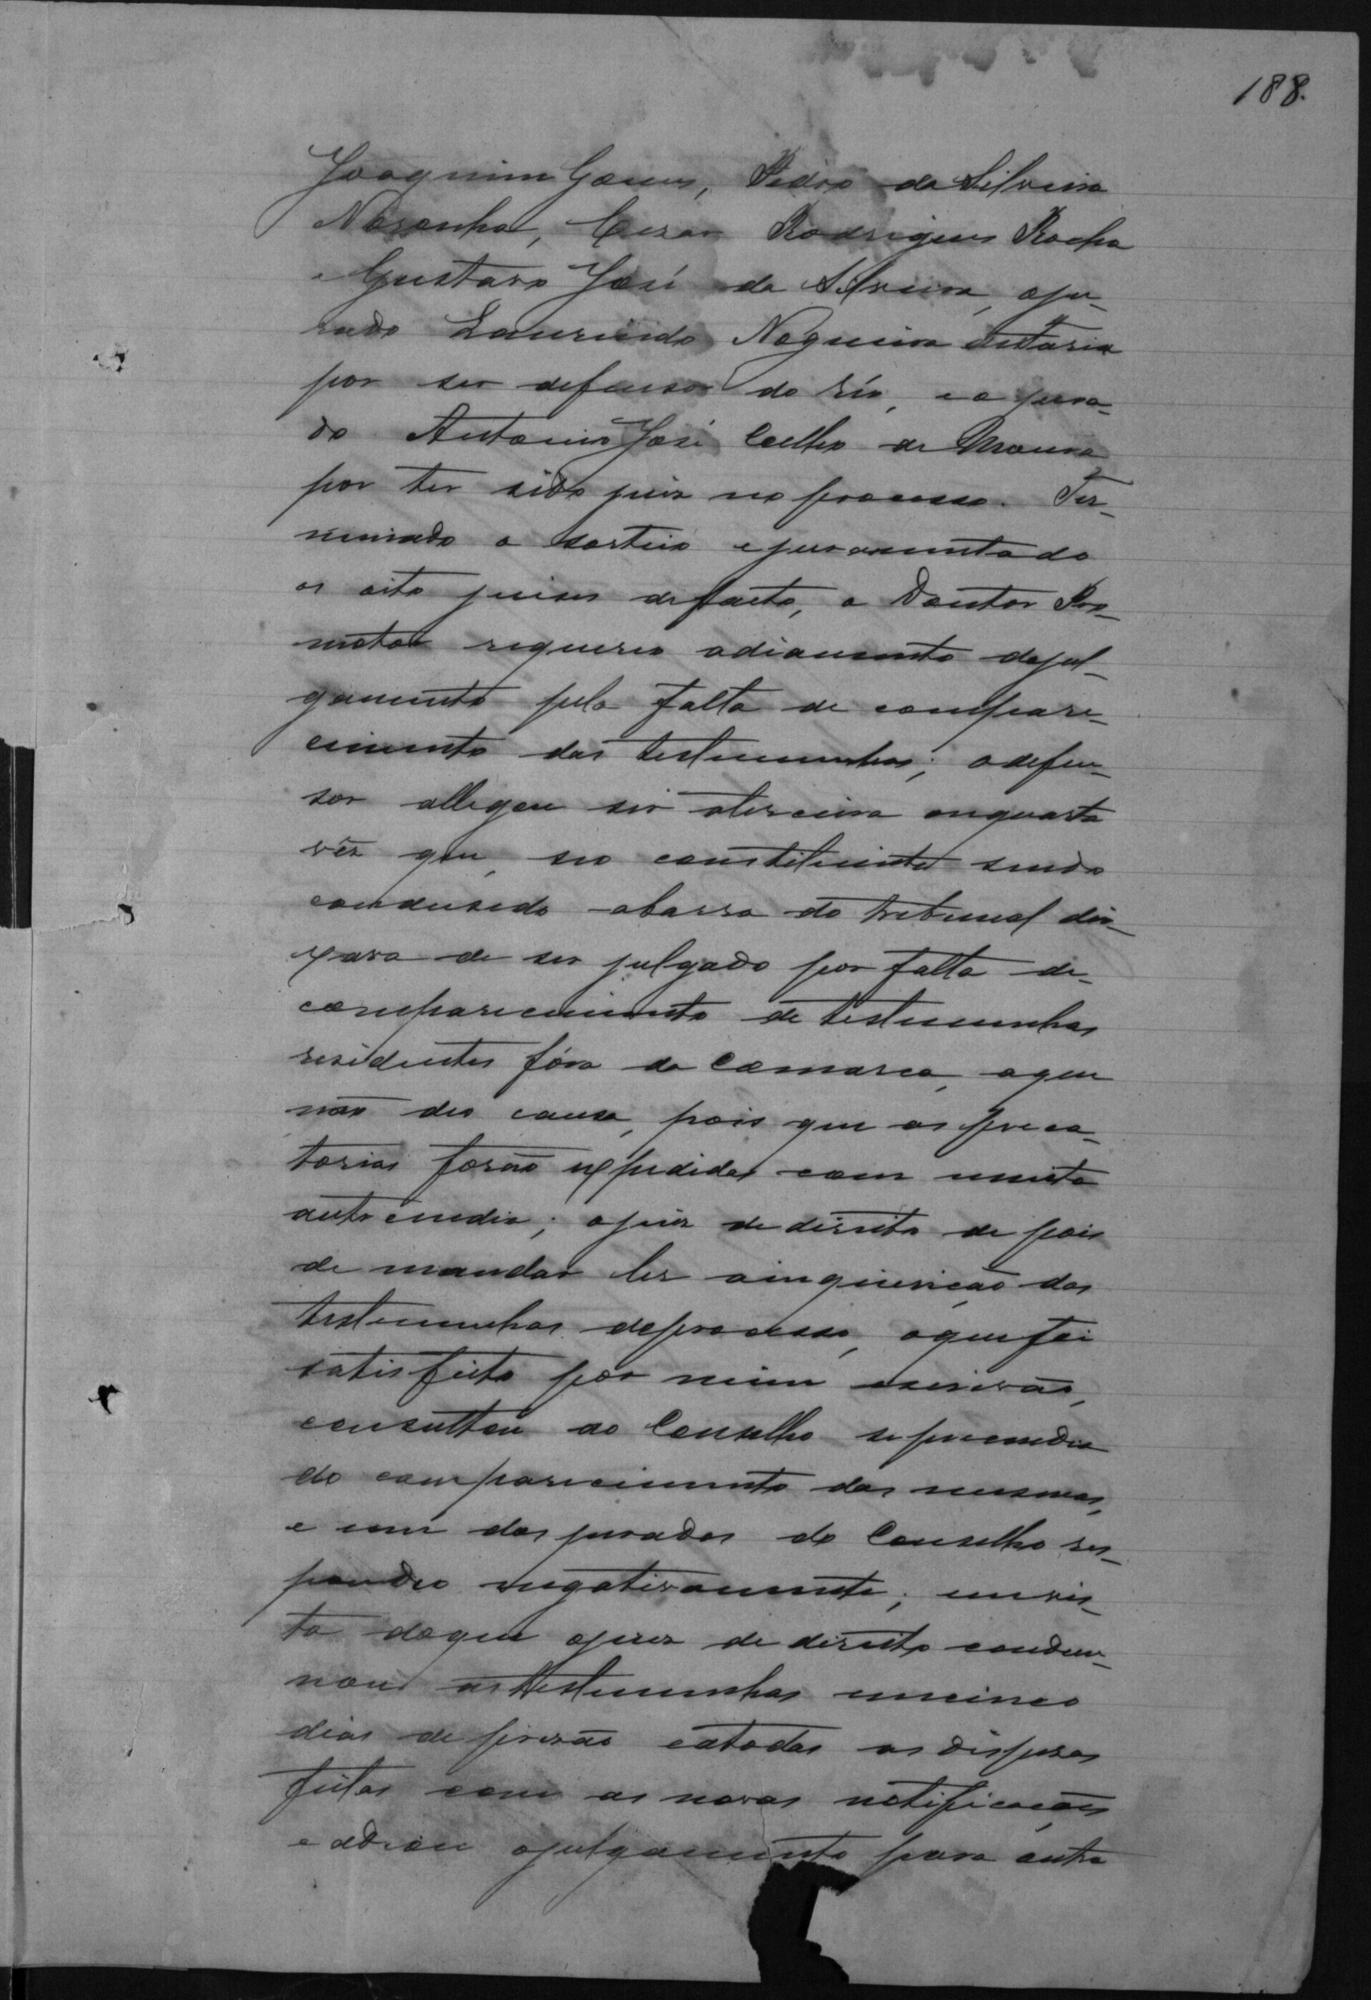 188.
Joaquim Gomes, Pedro da Silveira
Noronha, Cezar Rodrigues Rocha
e Gustavo José da Silveira, o ju-
rado Laurindo Nogueira
por ser defensor do réo, e o jura-
do Antonio José Coelho de Moura
por ter sido juiz no processo. Ter-
minado o sorteio e juramentado
os oito juises de facto, o Doutor Pro-
motor requereo adiamento do jul-
gamento pela falta de compare-
cimento das testemunhas; o defen-
sor allegou ser a terceira ou quarta
vêz que, seo constituinte sendo
condusido a barra do tribunal dei-
xava de ser julgado por falta de
comparecimento de testemunhas
residentes fóra da Comarca, a que
não deo causa, pois que as preca-
torias forão expedidas com muita
antecendia; o juiz de direito de pois
de mandar ler a inquirição das
testemunhas do processo, o que foi
satisfeito por mim escrivão,
consultou ao Conselho se prescendia
do comparecimento das mesmas,
e um dos jurados do Conselho res-
pondeo negativamente; em vis-
ta do que o juiz de direito conden-
nou as testemunhas em cinco
dias de prizão e a todas as dispesas
feitas com as novas notificações
e adiou o julgamento para outra